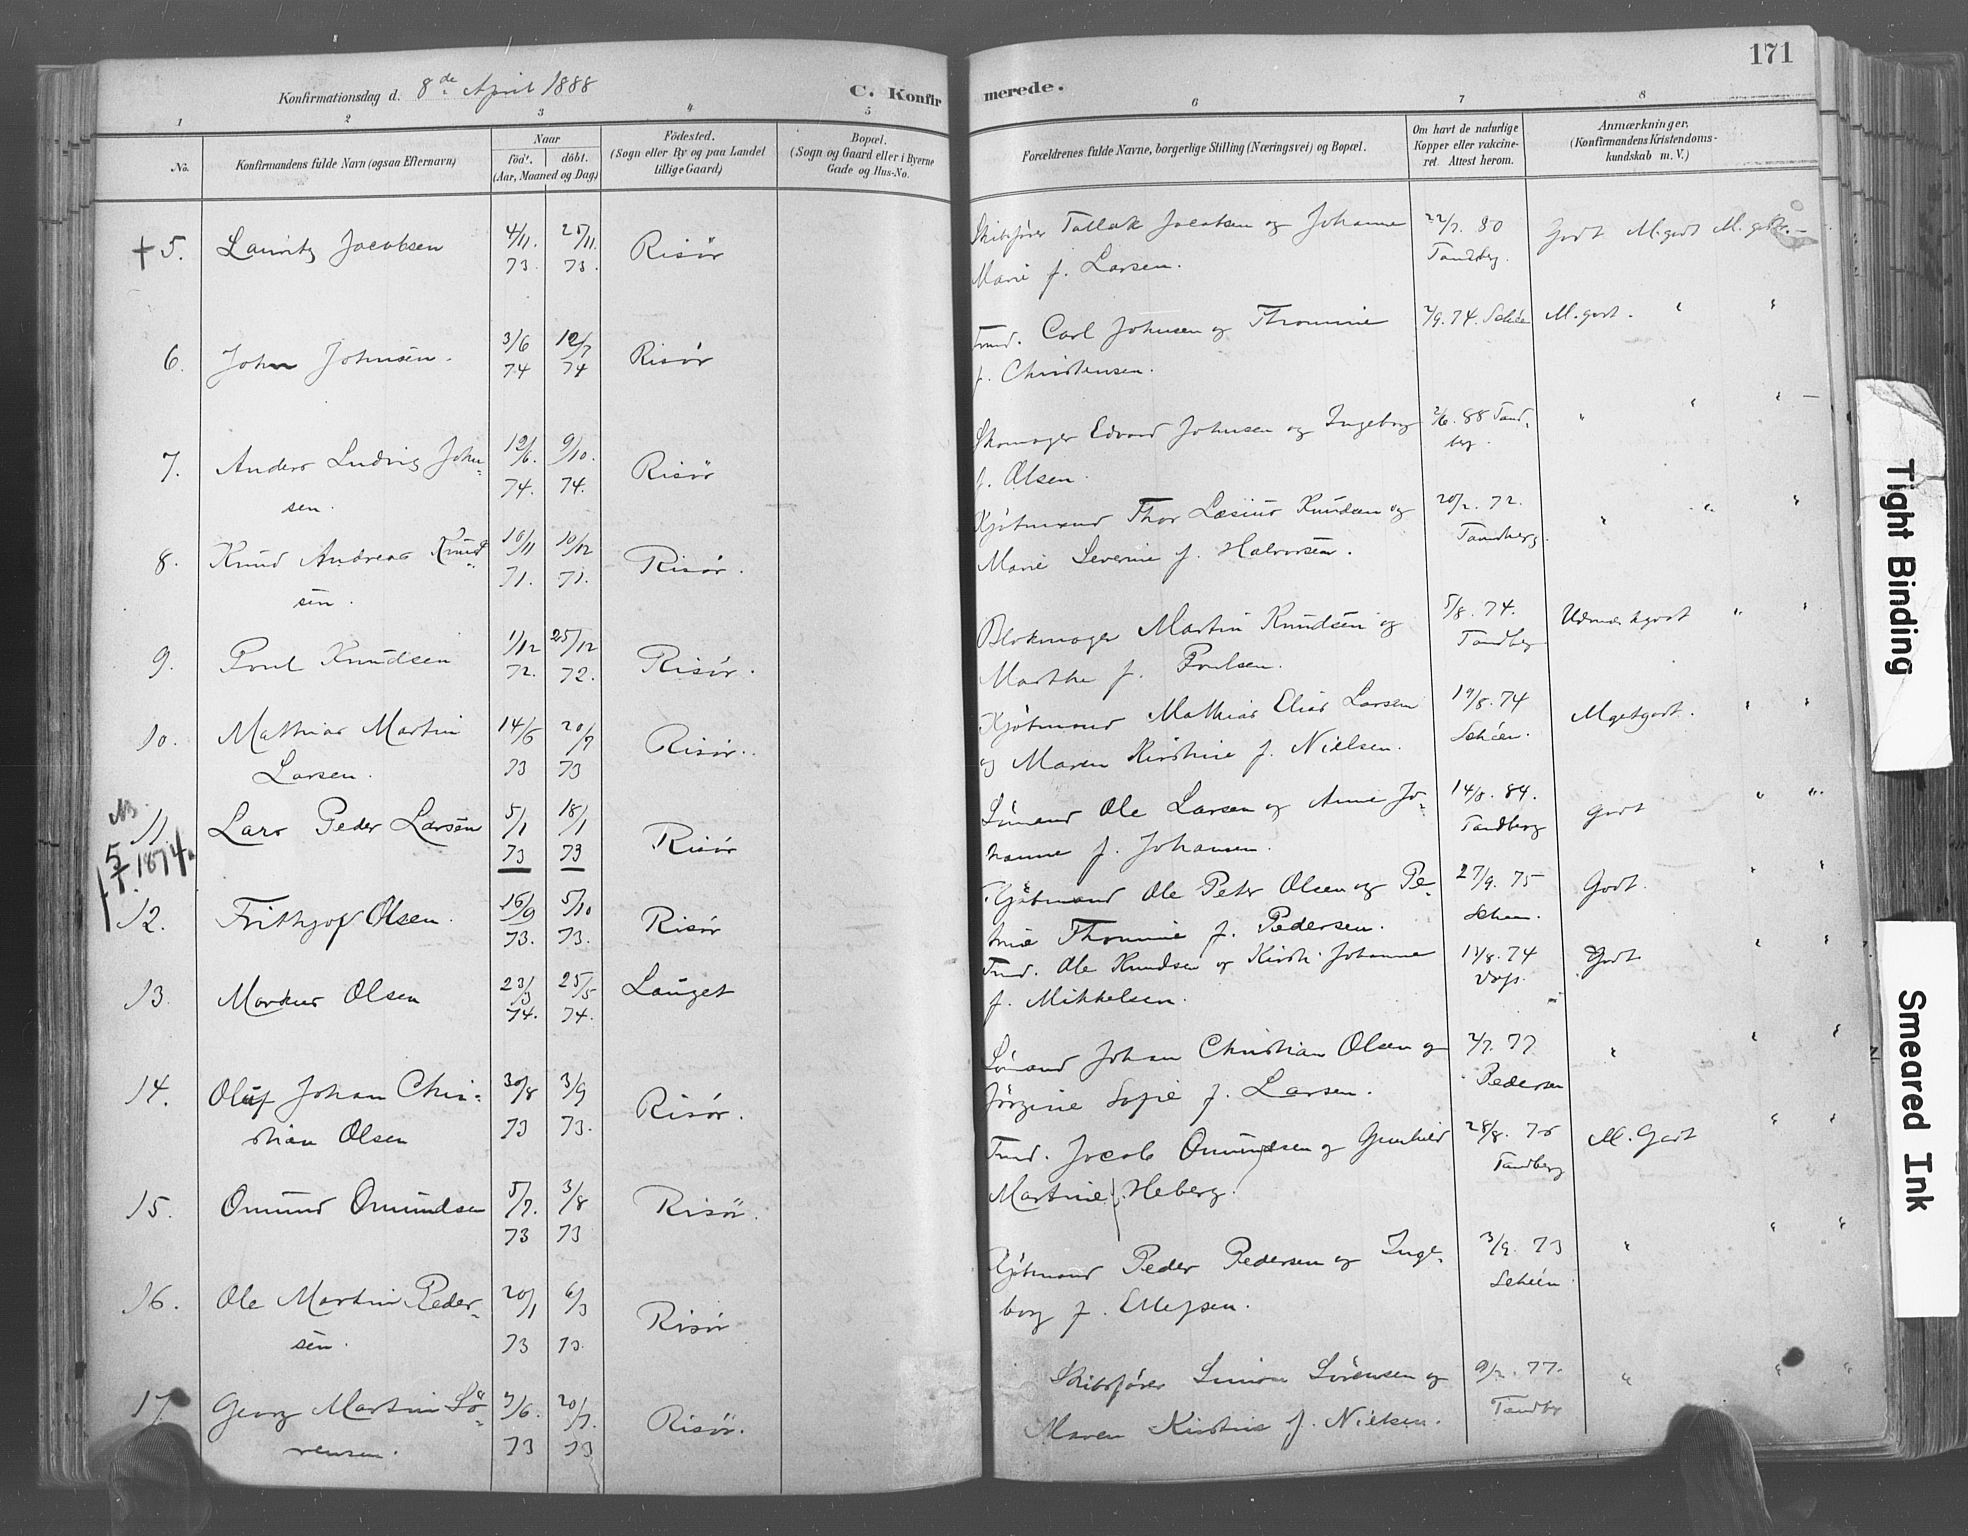 171
Konfirmationsdag d. 8de April 1888
C. Konfirmerede.
1 2 3 4 5 6 7 8
No.
Konfirmandens fulde Navn (ogsaa Efternavn)
Naar
fød'. døbt.
(Aar, Maaned og Dag)
Fødested.
(Sogn eller By og paa Landet
tillige Gaard)
Bopæl.
(Sogn og Gaard eller i Byerne
Gade og Hus-No.
Forældrenes fulde Navne, borgerlige Stilling (Næringsvei) og Bopæl.
Om havt de naturlige
Kopper eller vakcine-
ret. Attest herom.
Anmærkninger,
(Konfirmandens Kristendoms-
kundskab m. V.)
+ 5. Lauritz Jacobsen 4/11. 73. 25/11. 73. Risør
Skibsfører Tallak Jacobsen og Johanne
Marie f. Larsen.
22/7. 80
Tandberg.
Godt M.godt
6. John Johnsen. 3/6 74 12/7 74 Risør
Tmd. Carl Johnsen og Thomine
f. Christensen.
7/9. 74. Schéen
M.godt. " "
7. Anders Ludvig John-
sen. 12/6. 74. 9/10. 74. Risör
Skomager Edvard Johnsen og Ingeborg
f. Olsen.
2/6. 88 Tand-
berg.
" " "
8. Knud Andreas Knud-
sen. 10/11 71. 10/12 71. Risør.
Kjøbmand Thor Knudsen og
Marie Severine f. Halvorsen.
20/2. 72.
Tandberg.
" " "
9. Povel Knudsen 1/12 72. 25/12 72. Risør.
Blokmager Martin Knudsen og
Marthe f. Povelsen.
5/8. 74.
Tandberg
Udmærketgodt " "
10. Mathias Martin
Larsen. 14/5 73 20/7 73 Risør.
Kjøbmand Mathias Elias Larsen
og Maren Kirstine f. Nielsen.
19/8. 74
Schéen.
Megetgodt. " "
11. Lars Peder Larsen 5/1 73 18/1 73 Risør
5/1. 1874
Sömand Ole Larsen og Anne Jo-
hanne f. Johansen.
14/8. 84.
Tandberg
godt " "
12. Frithjof Olsen. 16/9 73. 5/10 73. Risør
Kjøbmand Ole Peter Olsen og Pe-
trine Thomine f. Pedersen.
27/9. 75
Scheen.
Godt. " "
13. Markus Olsen 23/3 74. 25/5 74. Lauget
Tmd. Ole Knudsen og Kirsti Johanne
f. Mikkelsen.
11/8. 74
Godt " "
14. Oluf Johan Chri-
stian Olsen 30/8 73 3/9 73. Risør.
Sømand Johan Christian Olsen og
Jörgine Sofie f. Larsen.
2/7. 77
Pedersen
" " "
15. Omund Omundsen 5/7. 73 3/8 73 Risør.
Tmd. Jacob Omundsen og Gunhild
Martine f. Heberg.
28/8. 75
Tandberg
M. Godt " "
16. Ole Martin Peder-
sen. 20/1 73 6/3 73. Risør
Kjøbmand Peder Pedersen og Inge-
borg f. Ellefsen.
3/9. 73
Schéen.
" " "
17. Georg Martin Sö-
rensen. 3/6. 73 20/7. 73 Risør.
Skibsfører Simon Sörensen og
Maren Kirstine f. Nielsen.
9/2. 77.
Tandbg
" " "
Tight Binding
Smeared Ink